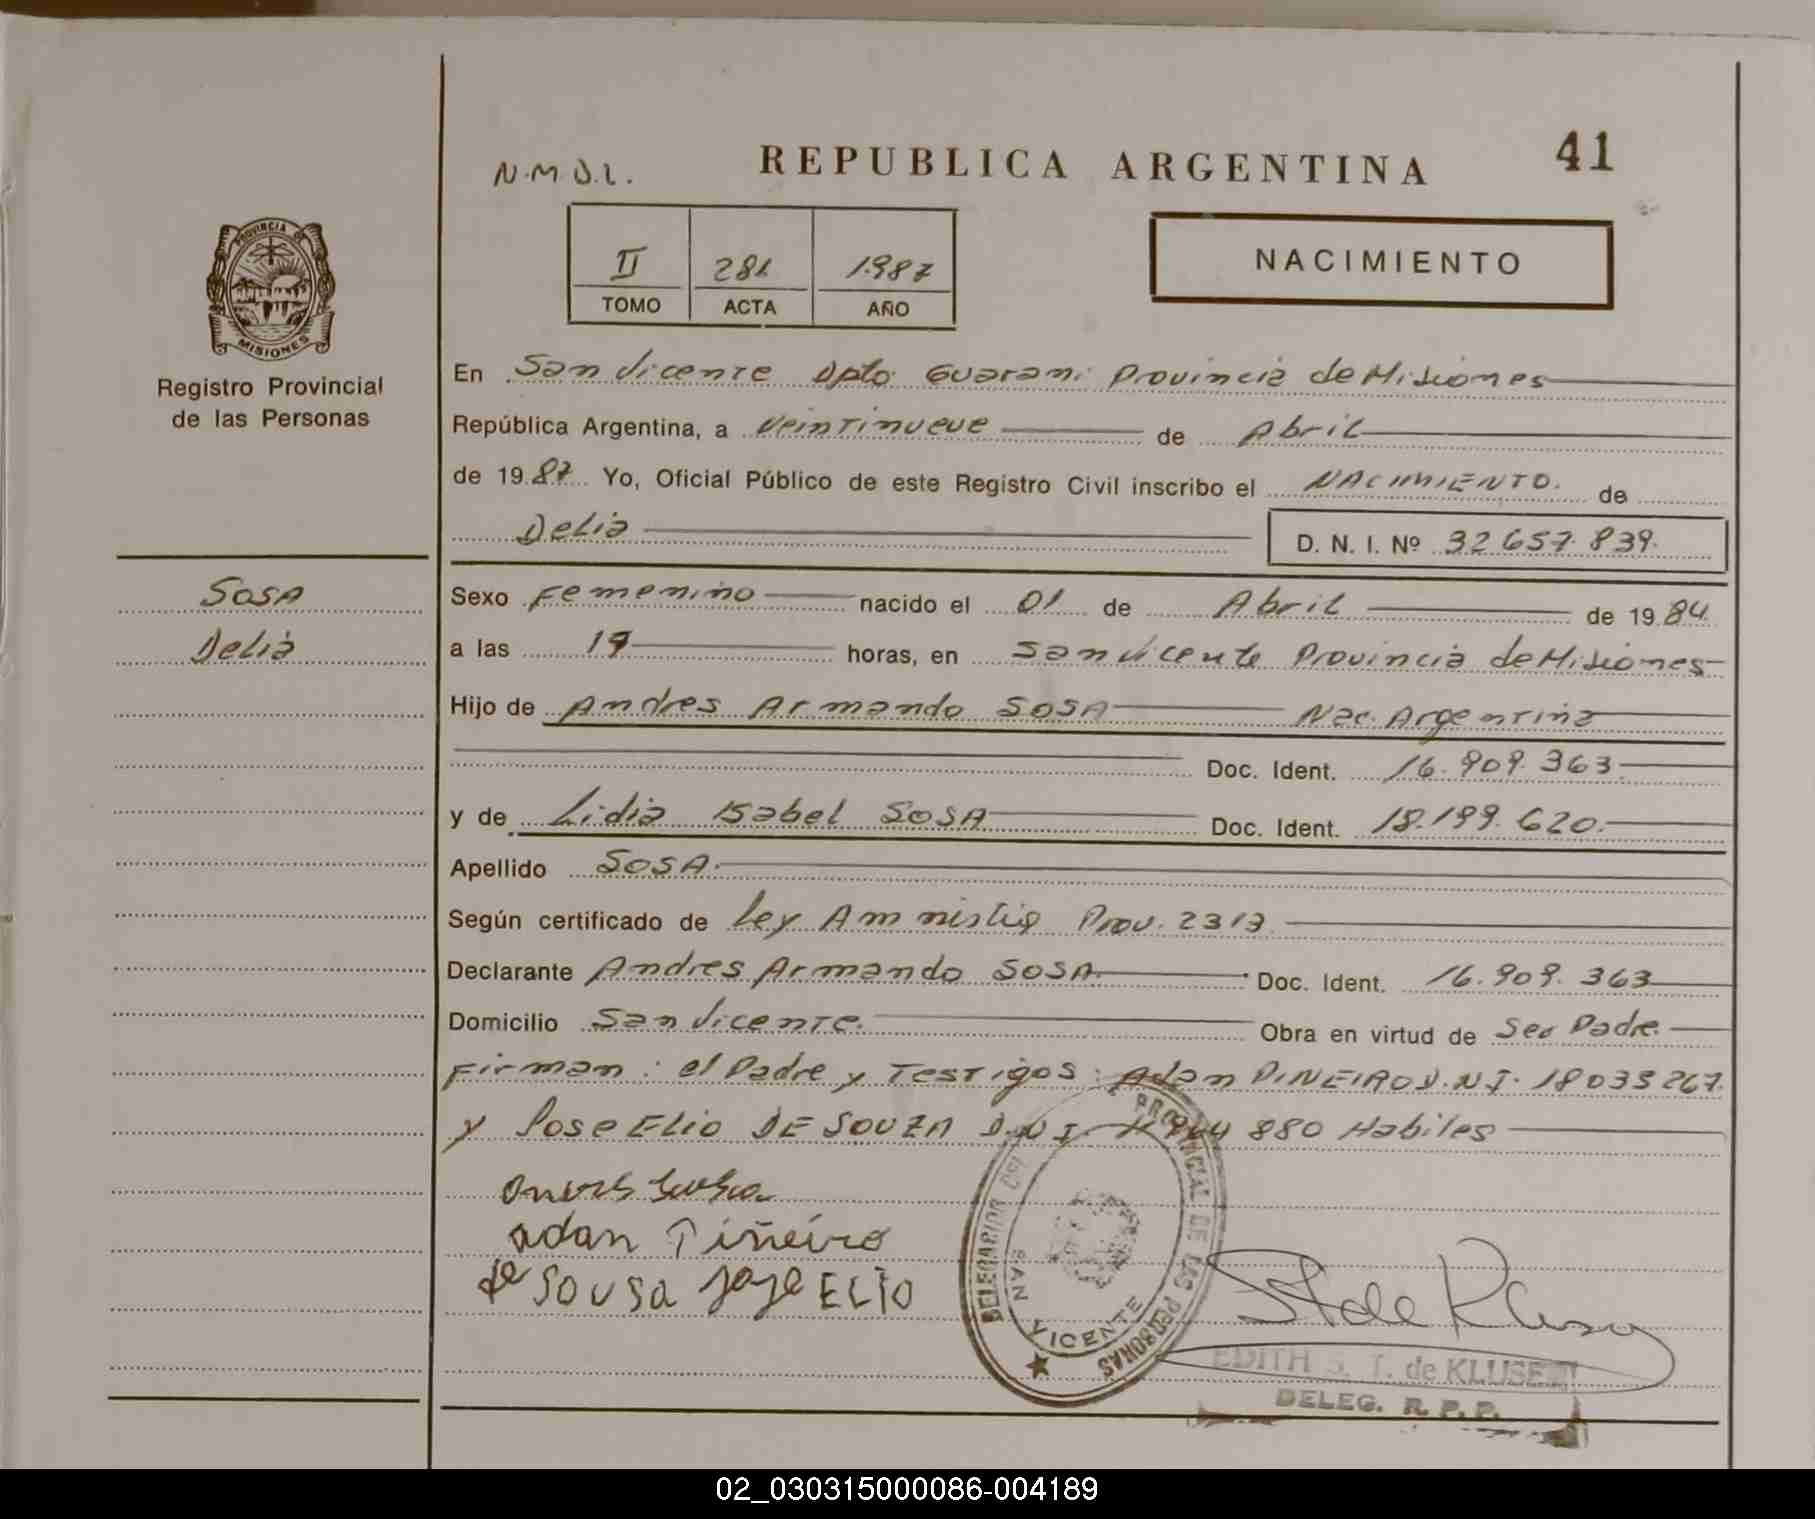 N.M.D.L.
REPUBLICA ARGENTINA
41
PROVINCIA DE
MISIONES
Registro Provincial
de las Personas
II 281 1.987
TOMO ACTA AÑO
NACIMIENTO
En San Vicente Dpto Guarani Provincia de Misiones
República Argentina, a Veintinueve de Abril
de 19 87 Yo, Oficial Público de este Registro Civil inscribo el NACIMIENTO. de
Delia D. N. I. Nº 32.657.839.
SOSA
Delia
Sexo Femenino nacido el 01 de Abril de 19 84.
a las 19 horas, en San Vicente Provincia de Misiones
Hijo de Andres Armando SOSA Nac. Argentina
Doc. Ident. 16.909.363
y de Lidia Isabel SOSA Doc. Ident. 18.199.620.
Apellido SOSA.
Según certificado de Ley Amnistia Prov. 2313
Declarante Andres Armando SOSA. Doc. Ident. 16.909.363
Domicilio San Vicente. Obra en virtud de Ser Padre.
Firman: el Padre y Testigos: Adan PINEIRO D.N.I. 18033267.
y Jose Elio DE SOUZA D.N.I. 880 Habiles
adan Piñeiro
de SOUSA Jose ELIO
DELEGACION DEL REG. PROVINCIAL DE LAS PERSONAS
SAN VICENTE
EDITH S. T. de KLUSEN
DELEG. R. P. P.
02_030315000086-004189